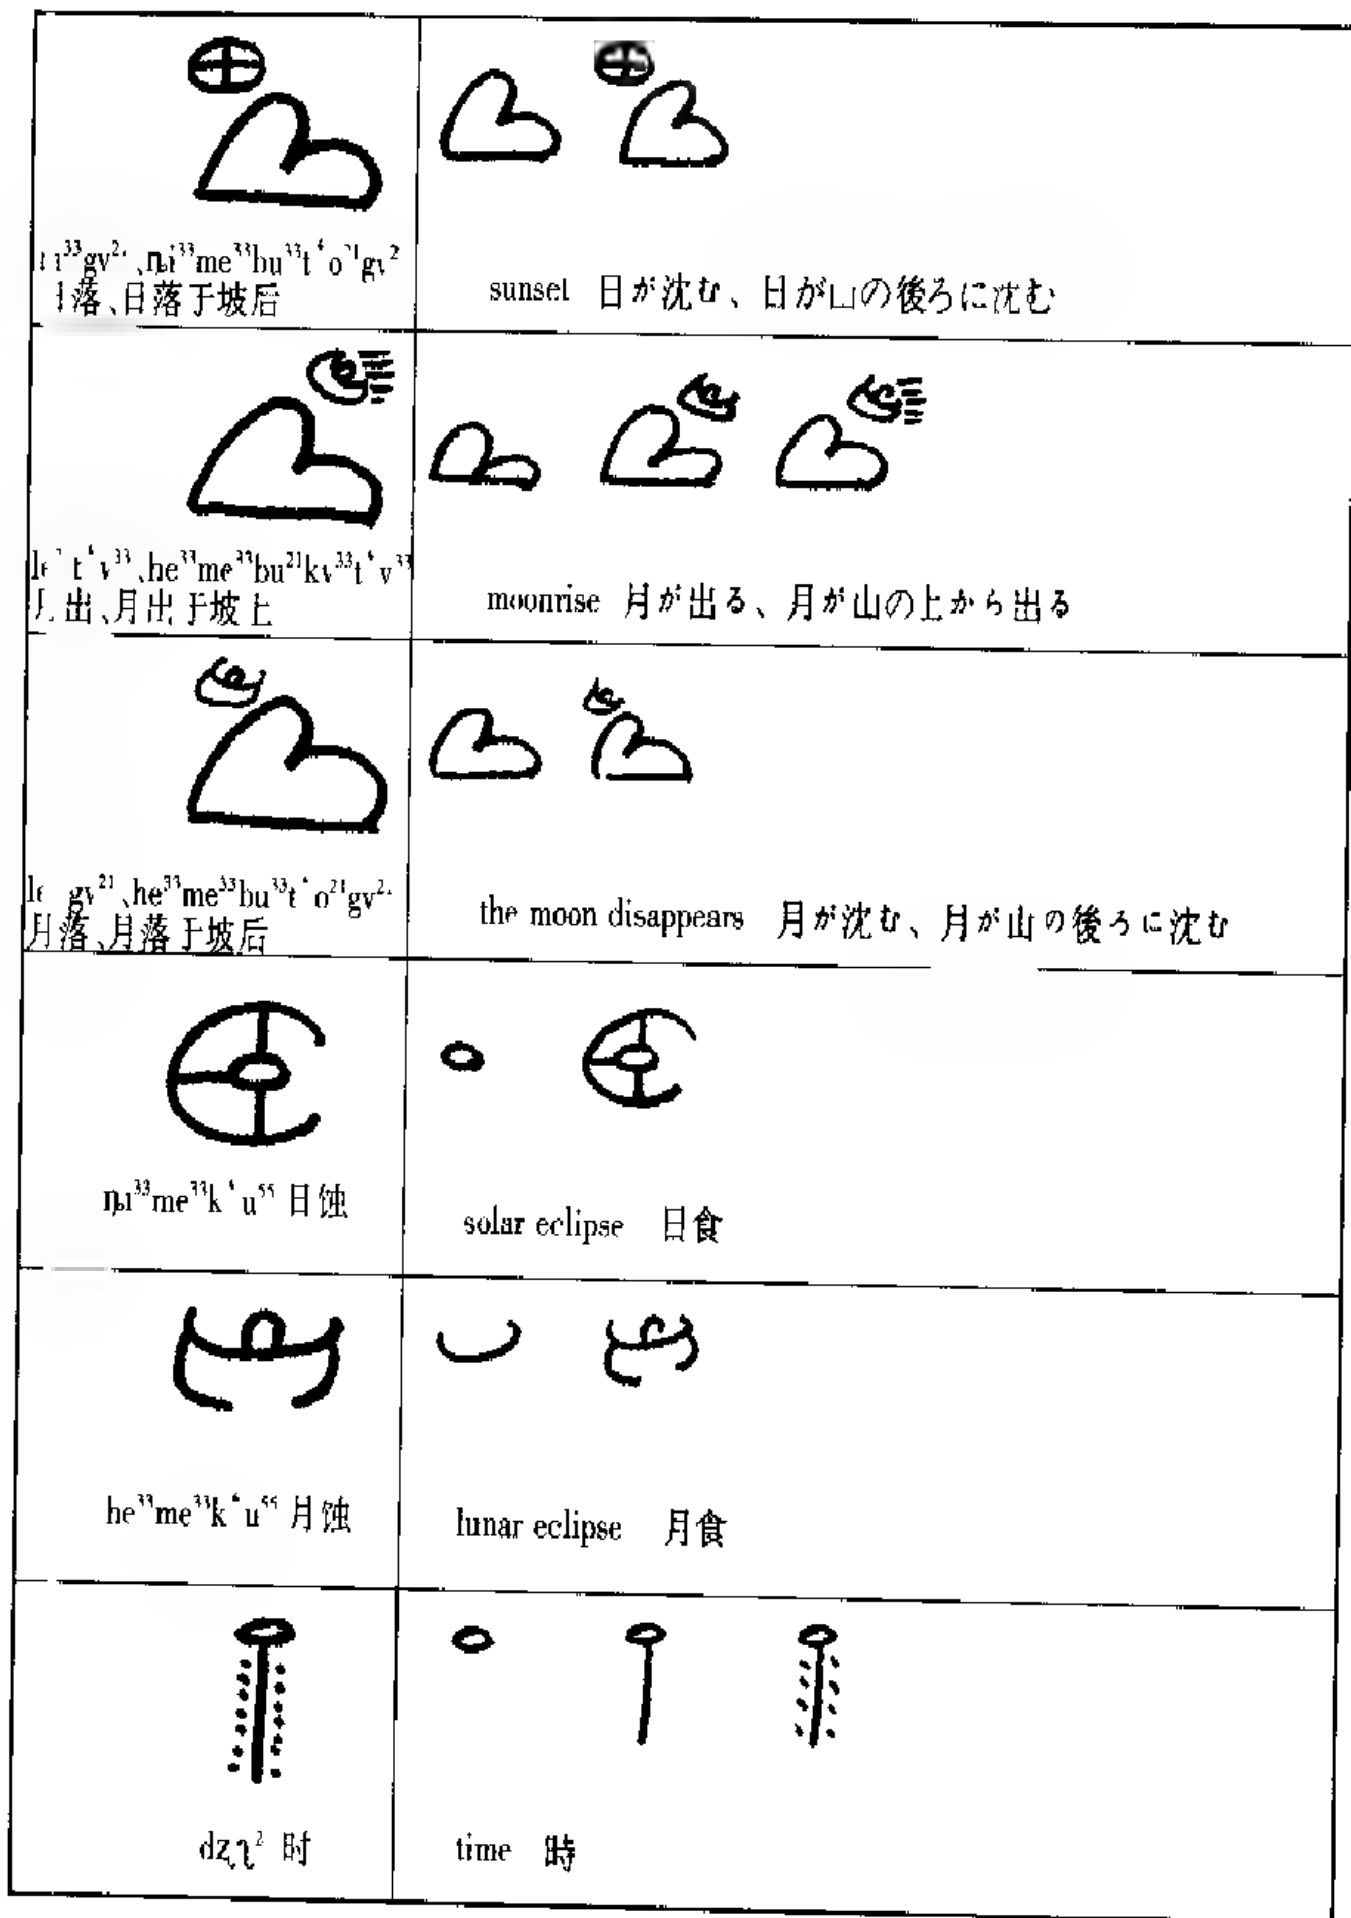 ȵi³³me³³bu³³tʻo²¹gv²
落、日落于坡后
sunset 日が沈む、日が山の後ろに沈む
tʻv³³、he³³me³³bu²¹kv³³tʻv³³
月出、月出于坡上
moonrise 月が出る、月が山の上から出る
gv²¹、he³³me³³bu³³tʻo²¹gv²
月落、月落于坡后
the moon disappears 月が沈む、月が山の後ろに沈む
ȵi³³me³³kʻu⁵⁵ 日蚀
solar eclipse 日食
he³³me³³kʻu⁵⁵ 月蚀
lunar eclipse 月食
dʐʅ² 时
time 時